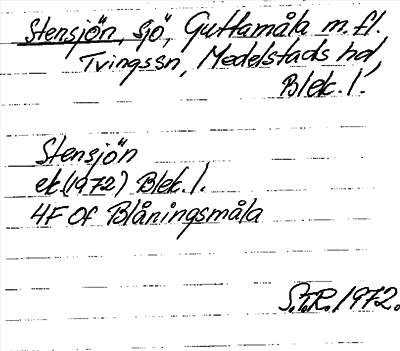 Stensjön, sjö, Guttamåla m.fl.
Tvingssn, Medelstads hd,
Blek. l.
Stensjön
ek. (1972) Blek. l.
4F 0f Blåningsmåla
S.E.R. 1972.